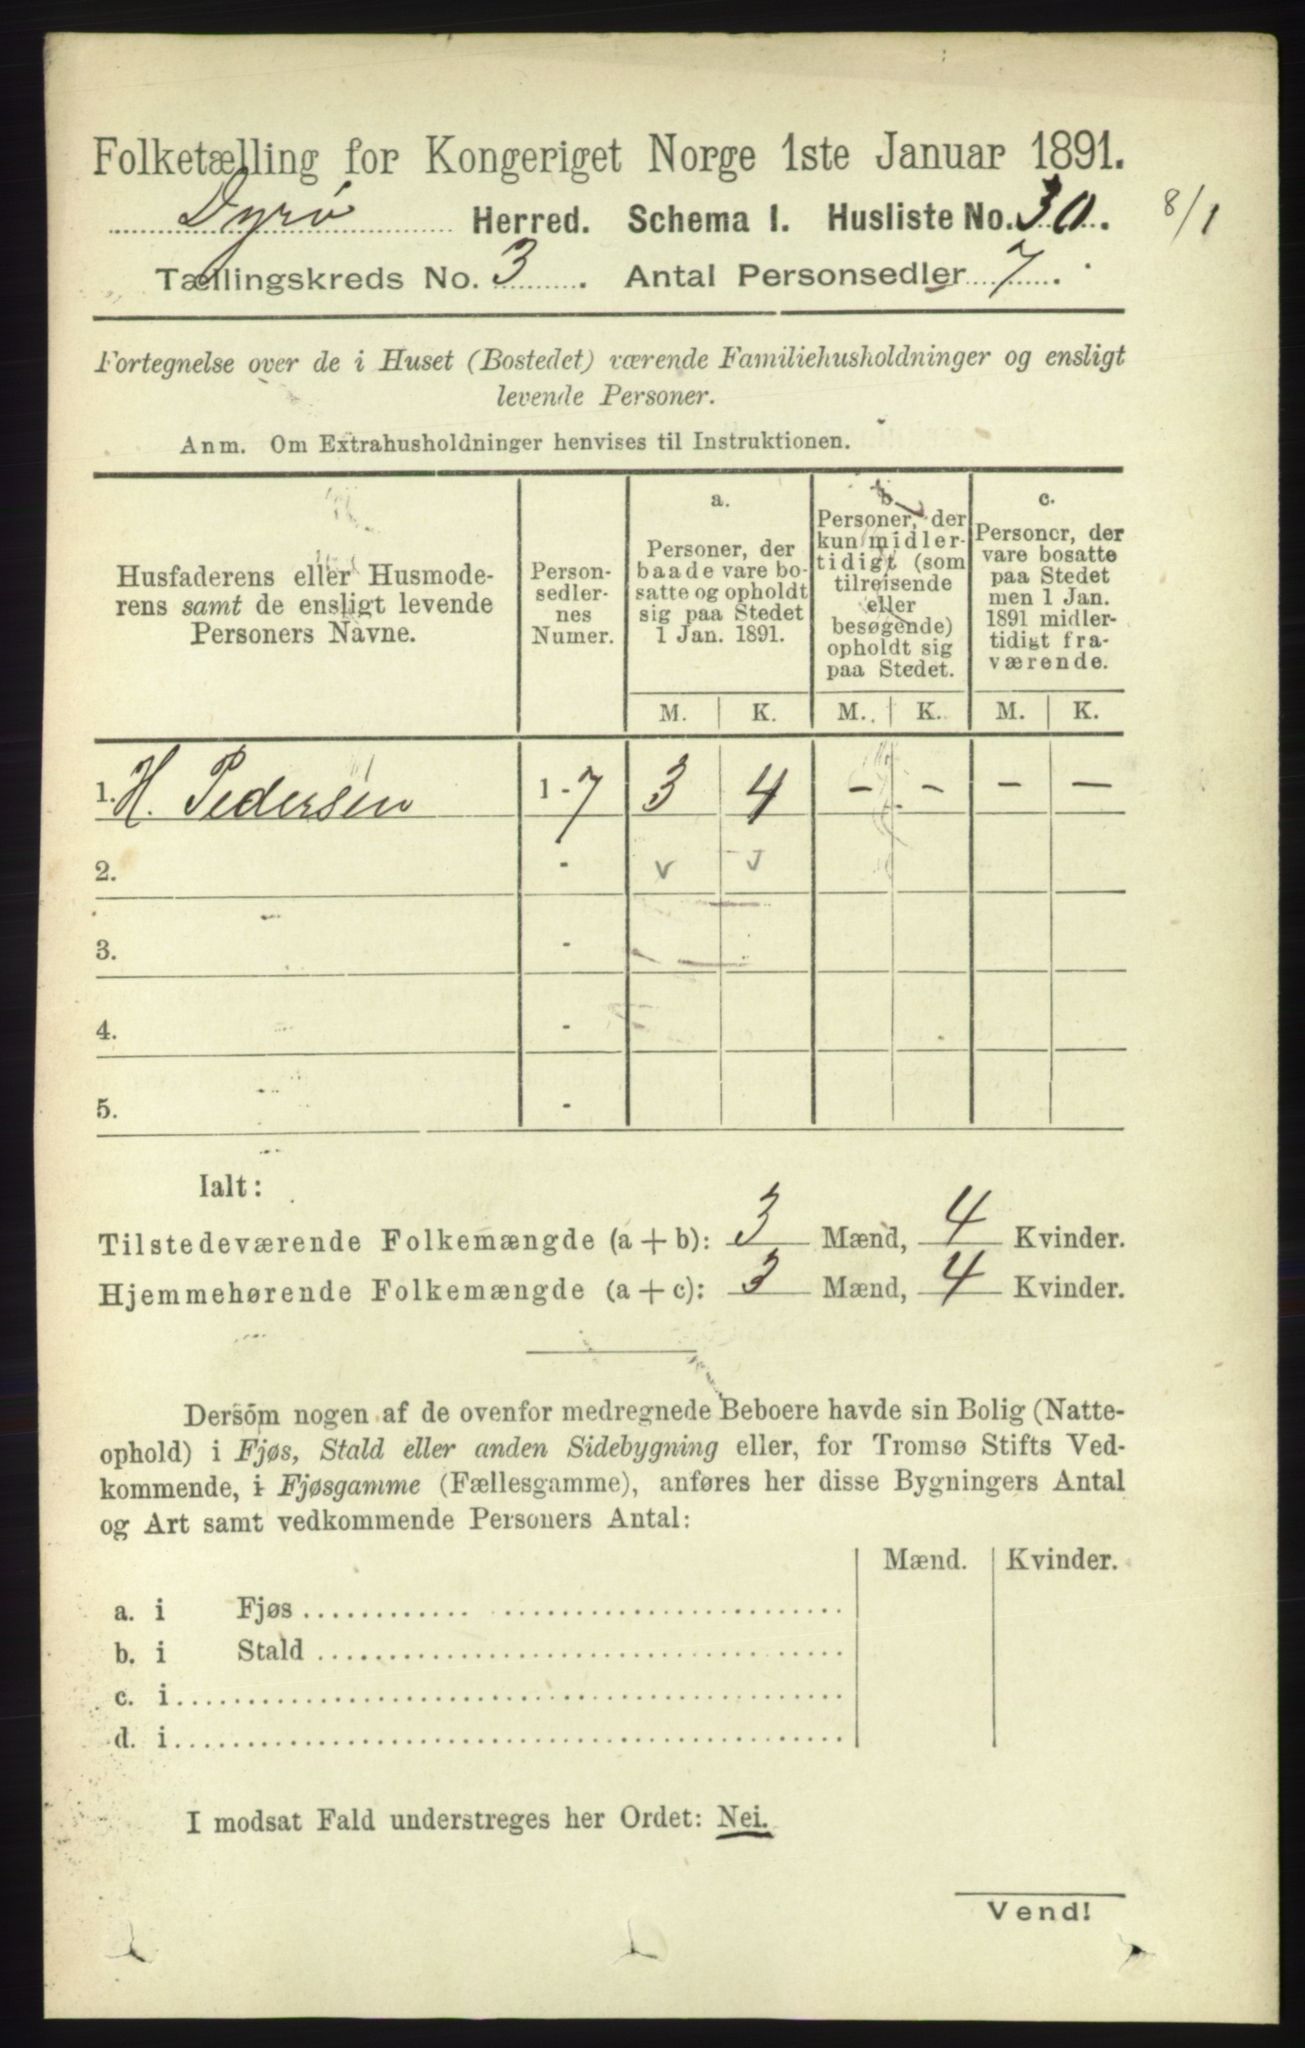 Folketælling for Kongeriget Norge 1ste Januar 1891.
Dyrø Herred. Schema I. Husliste No. 30. 8/1
Tællingskreds No. 3. Antal Personsedler 7.
Fortegnelse over de i Huset (Bostedet) værende Familiehusholdninger og ensligt
levende Personer.
Anm. Om Extrahusholdninger henvises til Instruktionen.
Husfaderens eller Husmode-
rens samt de ensligt levende
Personers Navne.
Person-
sedler-
nes
Numer.
a.
Personer, der
baade vare bo-
satte og opholdt
sig paa Stedet
1 Jan. 1891.
b.
Personer, der
kun midler-
tidigt (som
tilreisende
eller
besøgende)
opholdt sig
paa Stedet.
c.
Personer, der
vare bosatte
paa Stedet
men 1 Jan.
1891 midler-
tidigt fra-
værende.
M. K. M. K. M. K.
1. H. Pedersen 1-7 3 4 - - - -
2. - v v
3. -
4. -
5. -
Ialt:
Tilstedeværende Folkemængde (a + b): 3 Mænd, 4 Kvinder.
Hjemmehørende Folkemængde (a + c): 3 Mænd, 4 Kvinder.
Dersom nogen af de ovenfor medregnede Beboere havde sin Bolig (Natte-
ophold) i Fjøs, Stald eller anden Sidebygning eller, for Tromsø Stifts Ved-
kommende, i Fjøsgamme (Fællesgamme), anføres her disse Bygningers Antal
og Art samt vedkommende Personers Antal:
Mænd. Kvinder.
a. i Fjøs
b. i Stald
c. i
d. i
I modsat Fald understreges her Ordet: Nei.
Vend!